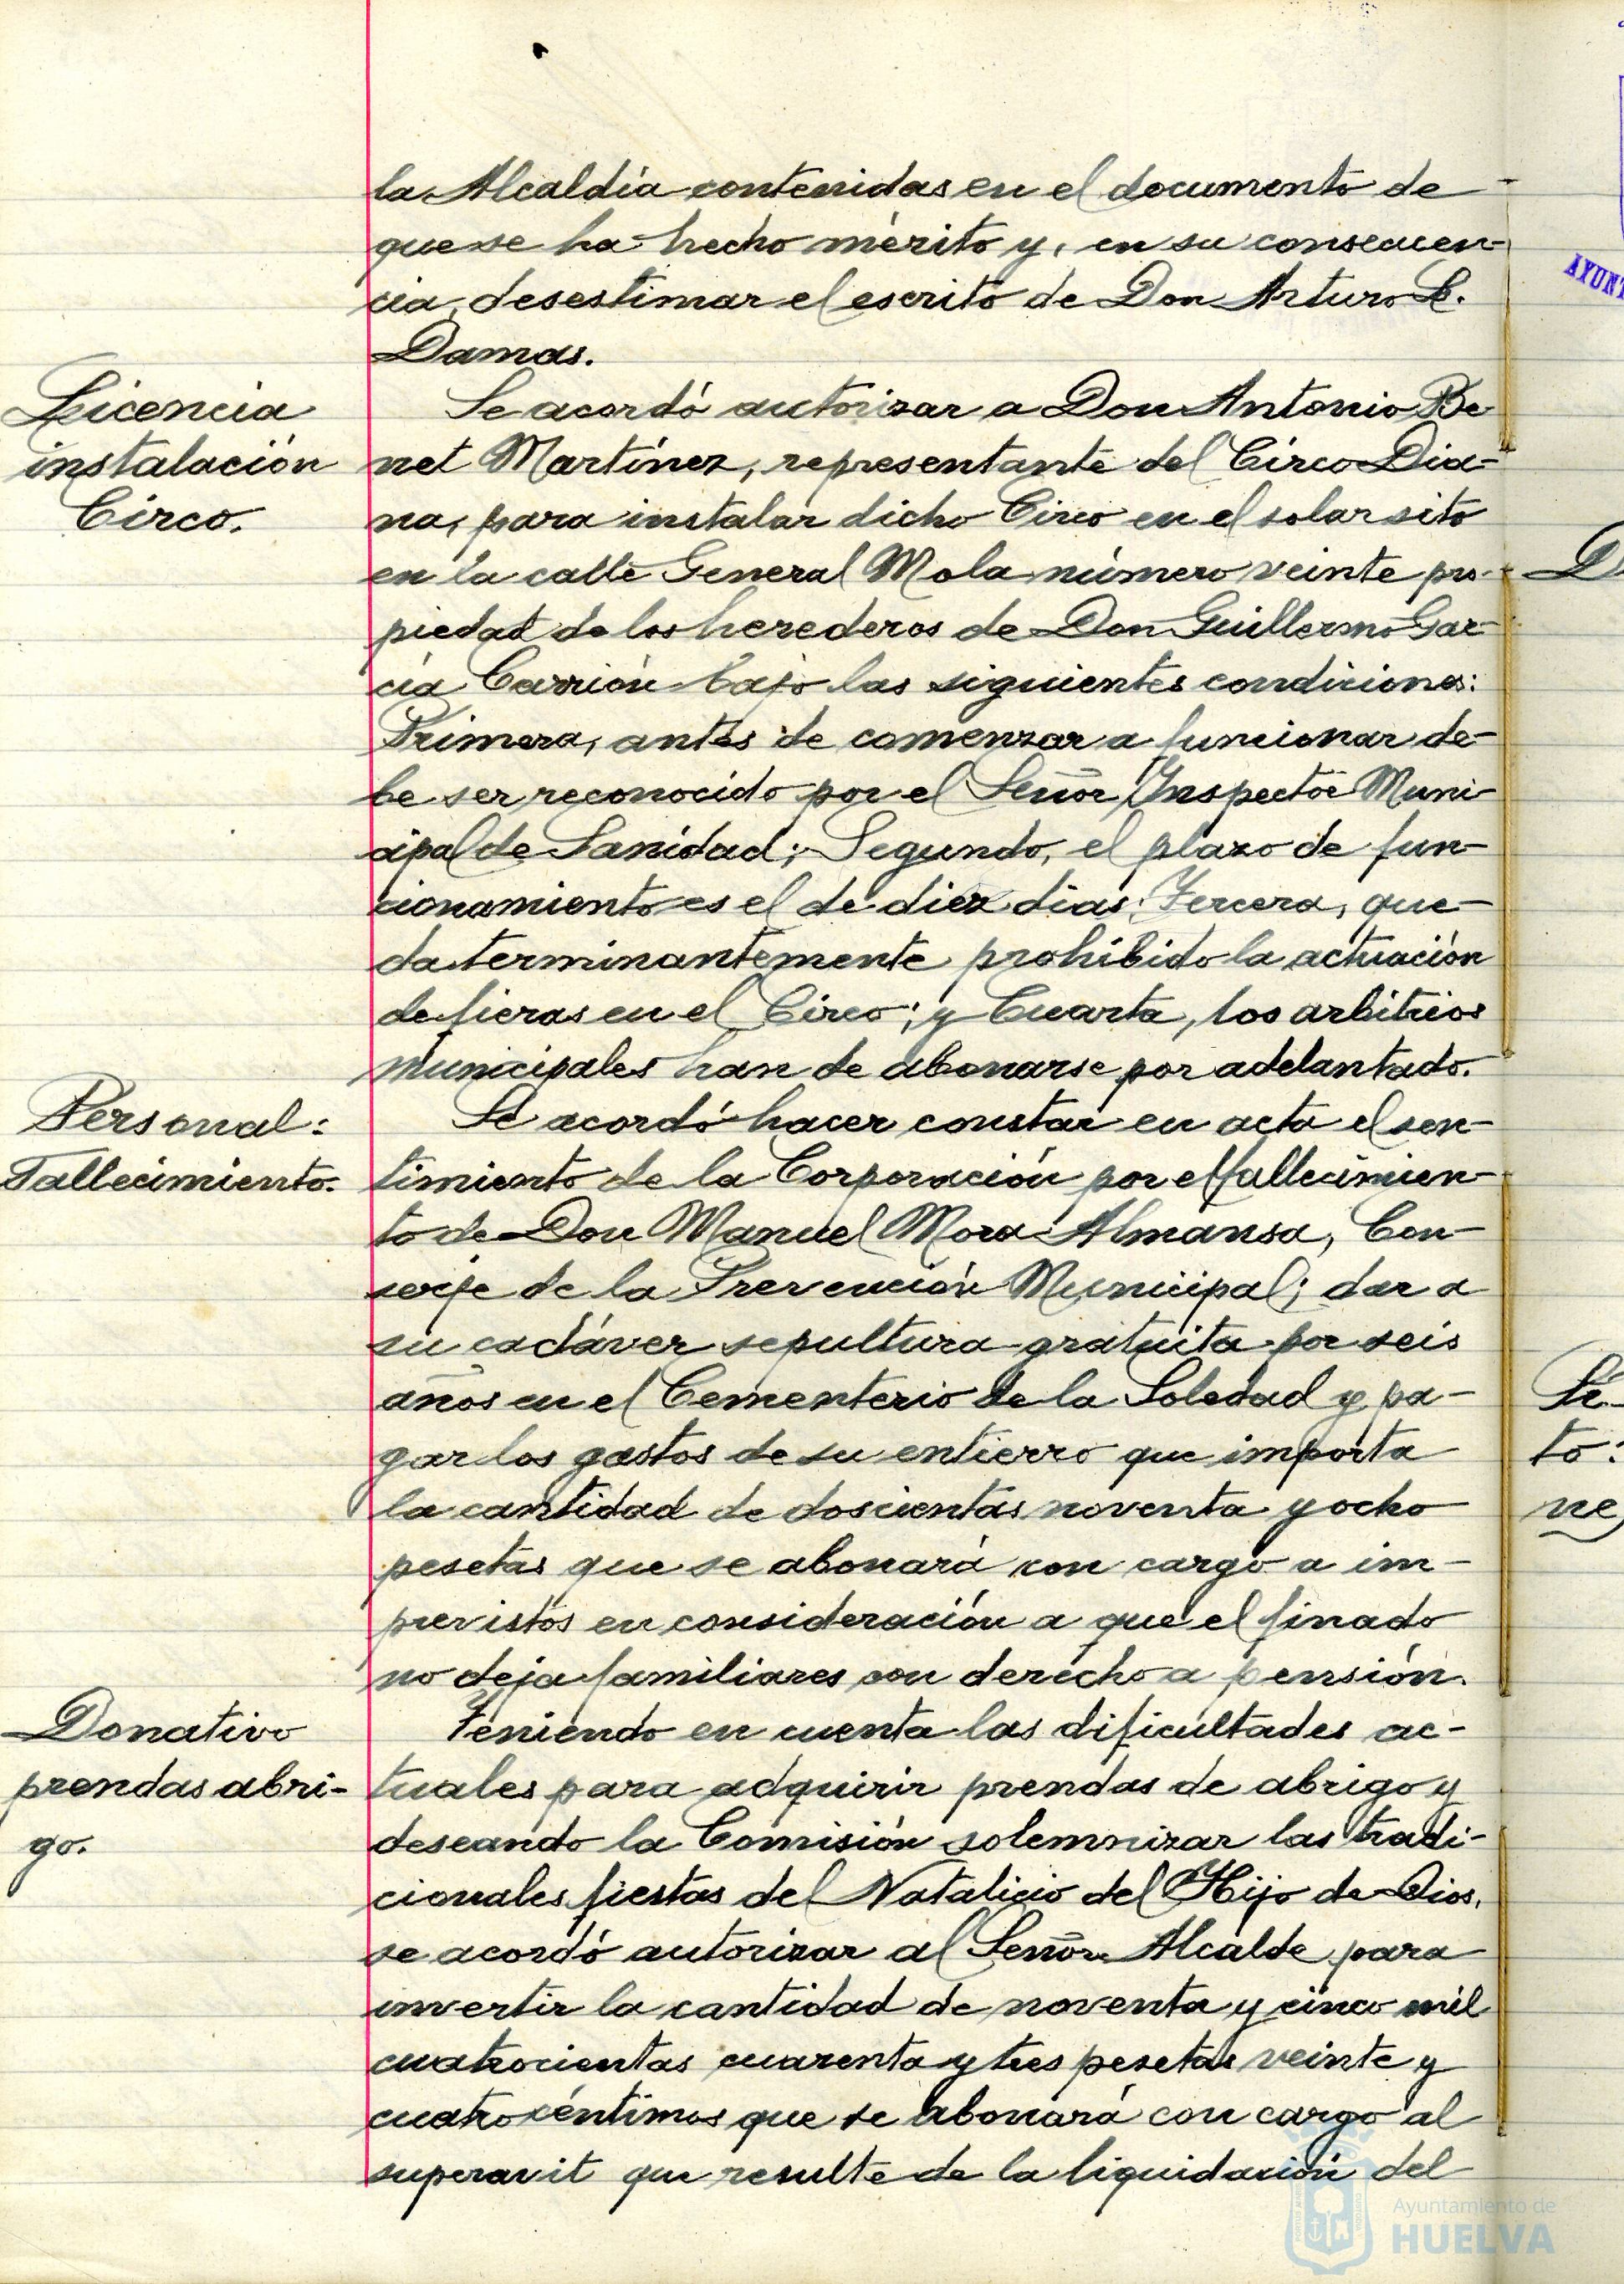 la Alcaldía contenidas en el documento de
que se ha hecho mérito y, en su consecuen-
cia, desestimar el escrito de Don Arturo L.
Damas.
Licencia
instalación
Circo.
Se acordó autorizar a Don Antonio Be
net Martínez, representante del Circo Dia-
na, para instalar dicho Circo en el solar sito
en la calle General Mola número veinte pro-
piedad de los herederos de Don Guillermo Gar-
cía Carrión bajo las siguientes condiciones:
Primera, antes de comenzar a funcionar de-
be ser reconocido por el Señor Inspector Muni-
cipal de Sanidad; Segundo, el plazo de fun-
cionamiento es el de diez dias; Tercera, que-
da terminantemente prohibido la actuación
de fieras en el Circo; y Cuarta, los arbitrios
municipales han de abonarse por adelantado.
Personal:
Fallecimiento.
Se acordó hacer constar en acta el sen-
timiento de la Corporación por el fallecimien-
to de Don Manuel Mora Almansa, Con-
serje de la Prevención Municipal; dar a
su cadáver sepultura gratuita por seis
años en el Cementerio de la Soledad y pa-
gar los gastos de su entierro que importa
la cantidad de doscientas noventa y ocho
pesetas que se abonará con cargo a im-
previstos en consideración a que el finado
no deja familiares con derecho a pensión.
Donativo
prendas abri-
go.
Teniendo en cuenta las dificultades ac-
tuales para adquirir prendas de abrigo y
deseando la Comisión solemnizar las tradi-
cionales fiestas del Natalicio del Hijo de Dios,
se acordó autorizar al Señor Alcalde para
invertir la cantidad de noventa y cinco mil
cuatrocientas cuarenta y tres pesetas veinte y
cuatro céntimos que se abonará con cargo al
superavit que resulte de la liquidación del
AYUNT
to:
Ayuntamiento de
HUELVA